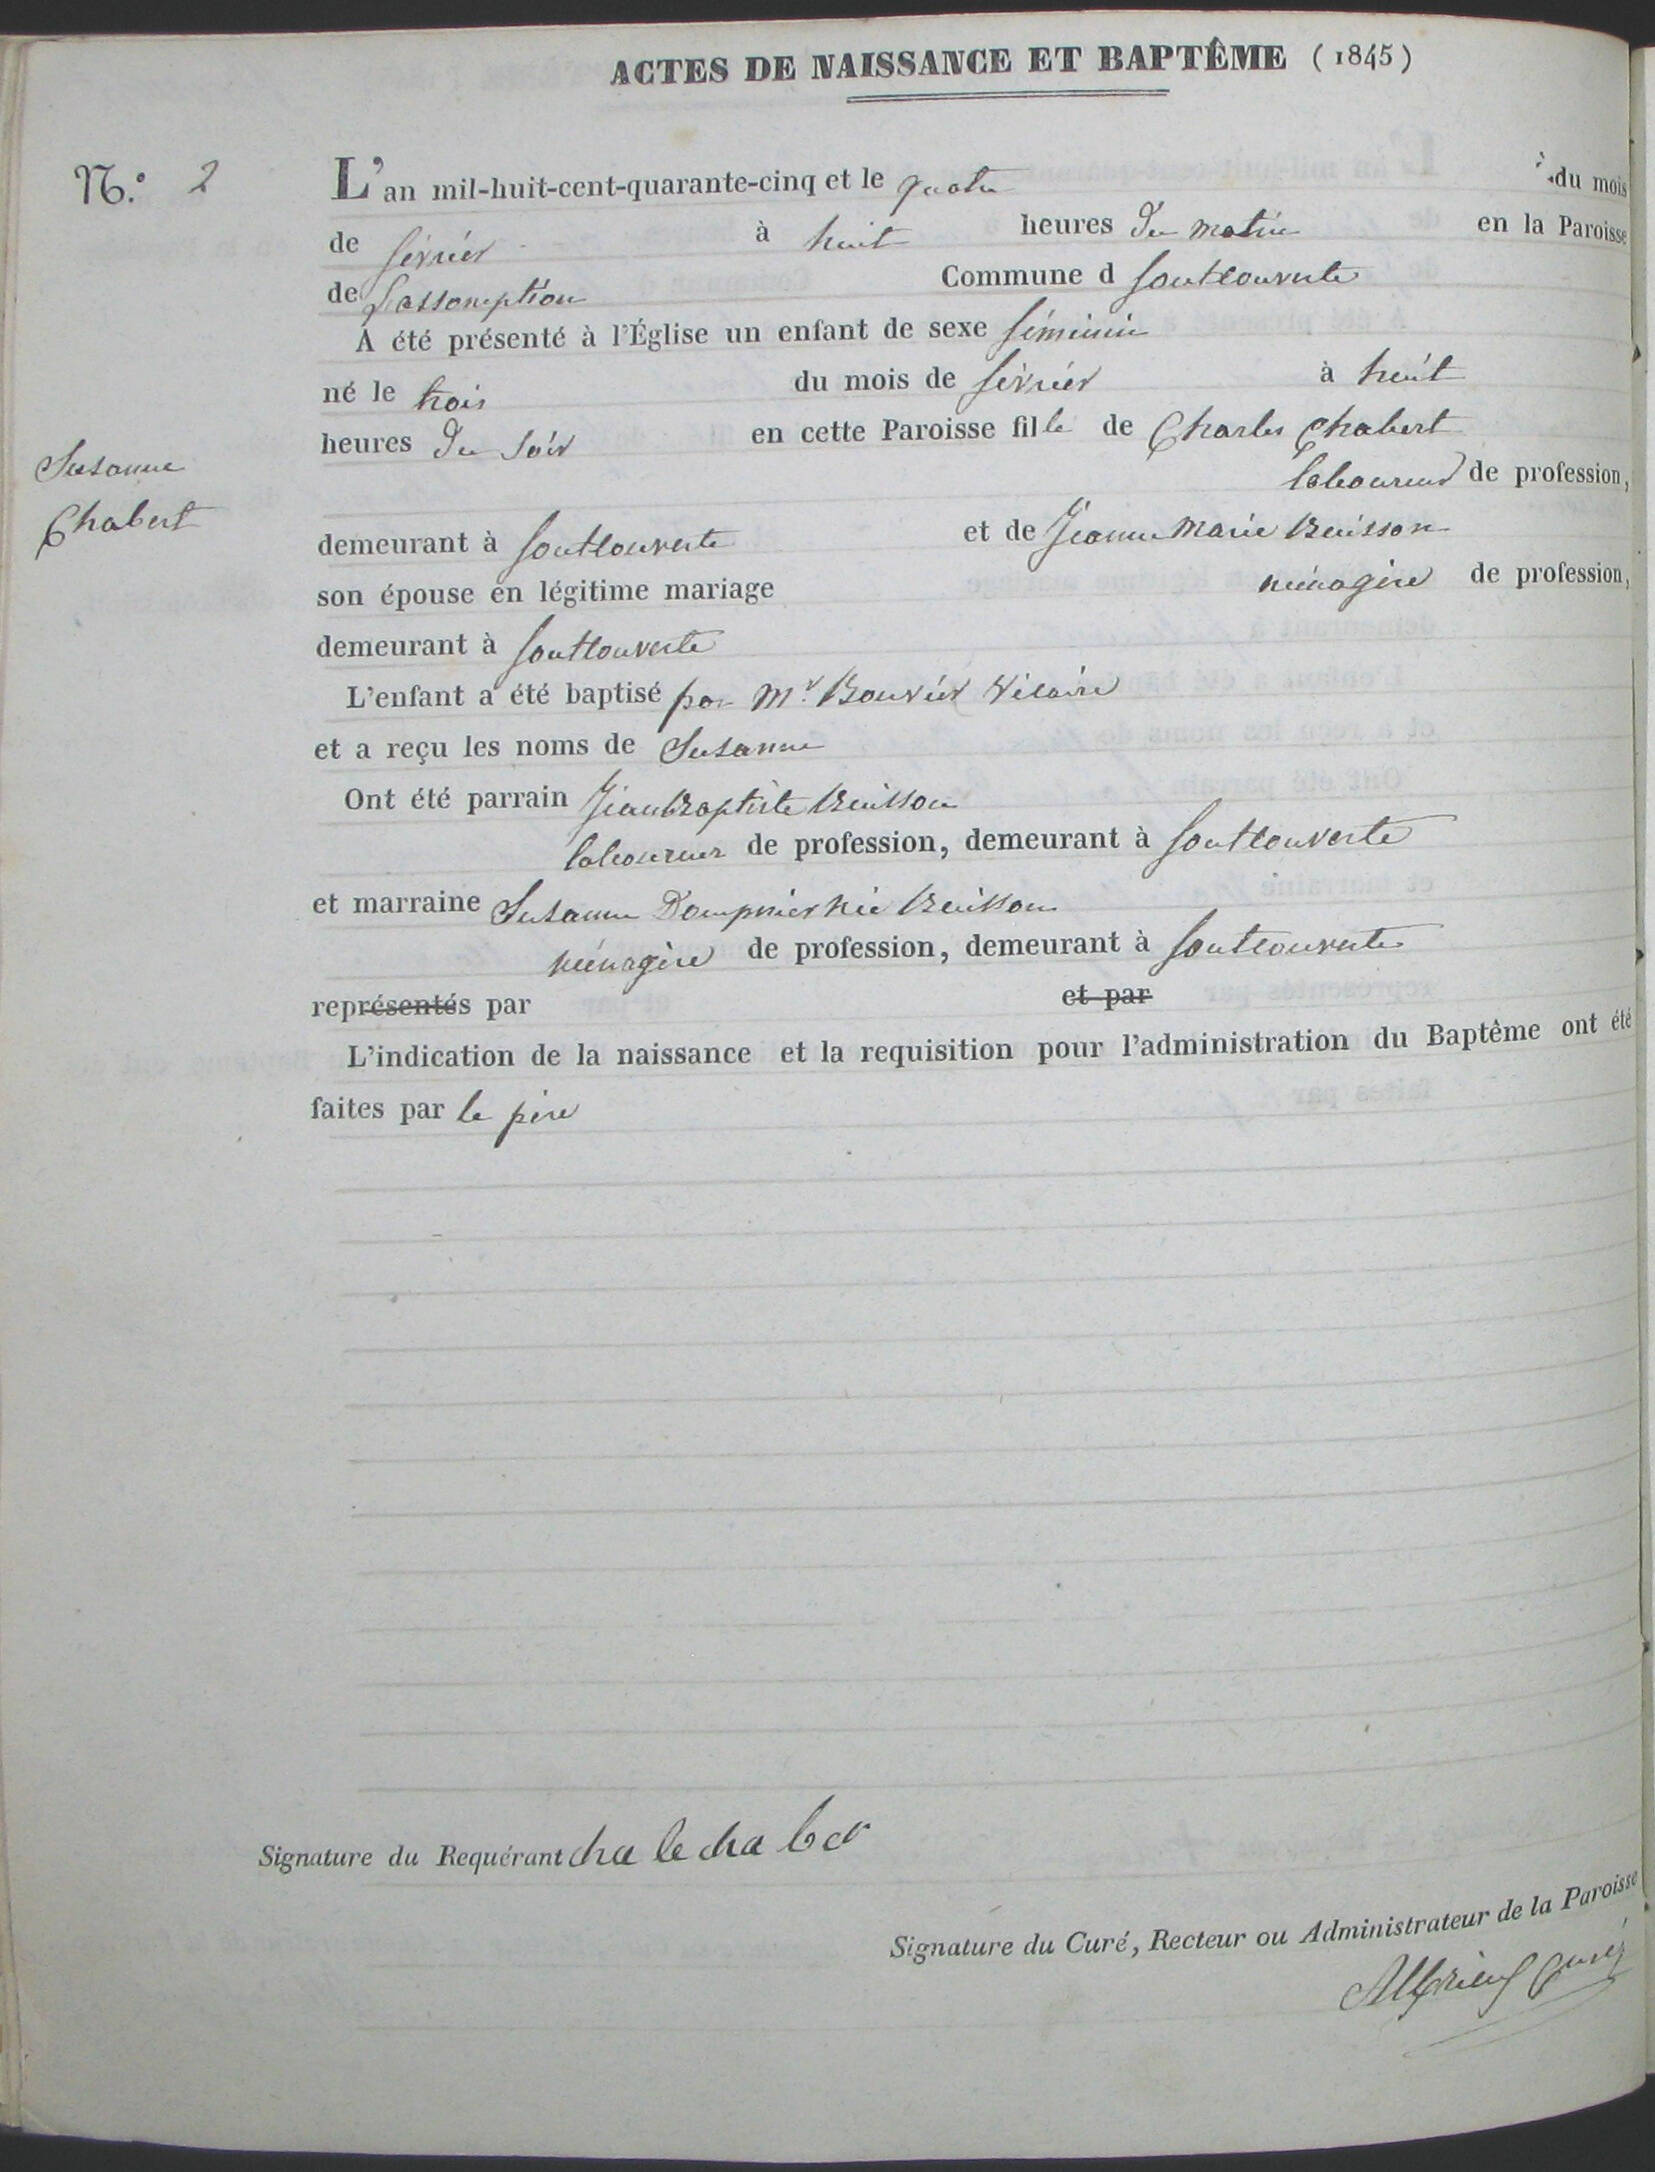 ACTES DE NAISSANCE ET BAPTÊME (1845)
N.° 2
L'an mil-huit-cent-quarante-cinq et le quatre du mois
de février à huit heures du matin en la Paroisse
de Lassomption Commune d fontcouverte
A été présenté à l'Église un enfant de sexe féminin
né le trois du mois de février à huit
heures du soir en cette Paroisse fille de Charles Chabert
laboureur de profession,
Susanne
Chabert
demeurant à fontcouverte et de Jeanne Marie Buisson
son épouse en légitime mariage ménagère de profession,
demeurant à fontcouverte
L'enfant a été baptisé par Mr Bouvier Vicaire
et a reçu les noms de Susanne
Ont été parrain Jean Baptiste Buisson
laboureur de profession, demeurant à fontcouverte
et marraine Susanne Dompnier née Buisson
ménagère de profession, demeurant à fontcouverte
représentés par et par
L'indication de la naissance et la requisition pour l'administration du Baptême ont été
faites par le père
Signature du Requérant cha le cha ber
Signature du Curé, Recteur ou Administrateur de la Paroisse
curé